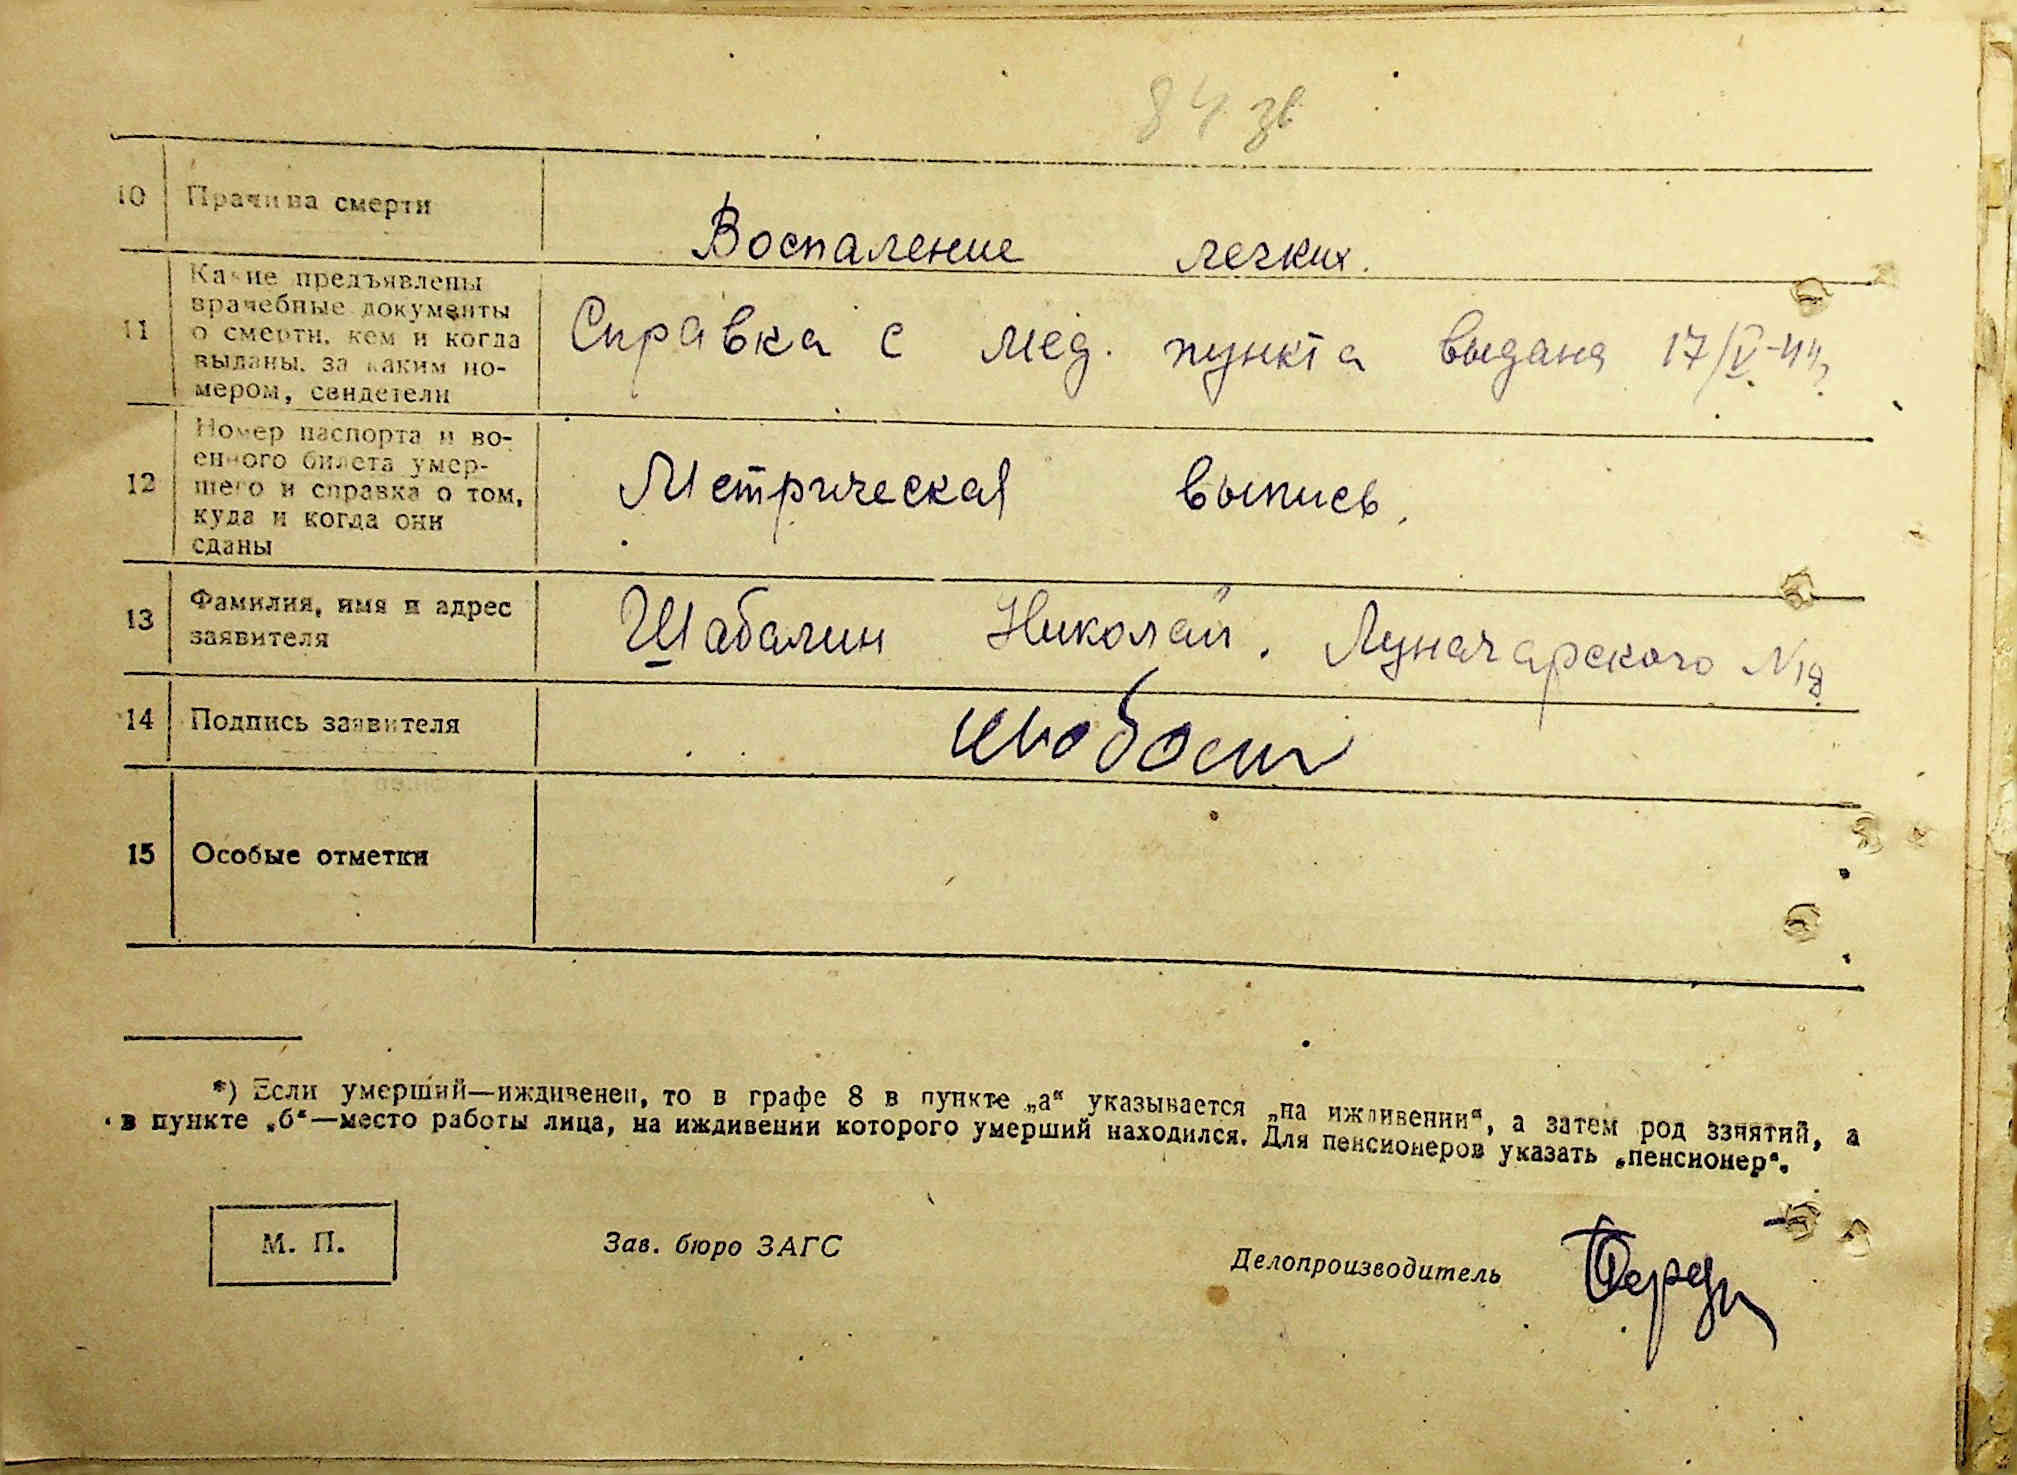 84 зв
10 Причина смерти Воспаление легких.
11 Какие предъявлены
врачебные документы
о смерти, кем и когда
выданы, за каким но-
мером, свидетели
Справка с мед. пункта выдана 17/V-44
12 Номер паспорта и во-
енного билета умер-
шего и справка о том,
куда и когда они
сданы
Метрическая выпись.
13 Фамилия, имя и адрес
заявителя
Шабалин Николай. Луначарского N18
14 Подпись заявителя
15 Особые отметки
*) Если умерший—иждивенец, то в графе 8 в пункте „а“ указывается „на иждивении“, а затем род занятий, а
в пункте „б“—место работы лица, на иждивении которого умерший находился. Для пенсионеров указать „пенсионер“.
М. П. Зав. бюро ЗАГС Делопроизводитель